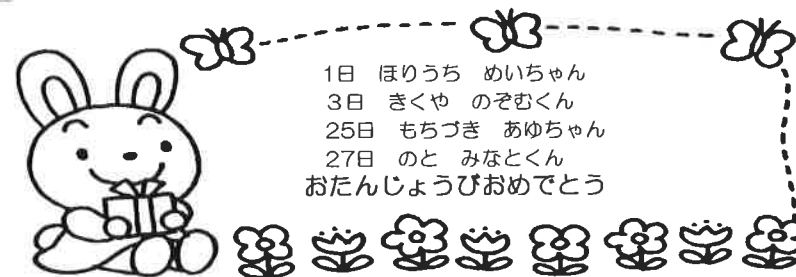 1日　ほりうち　めいちゃん
3日　きくや　のぞむくん
25日　もちづき　あゆちゃん
27日　のと　みなとくん
おたんじょうびおめでとう